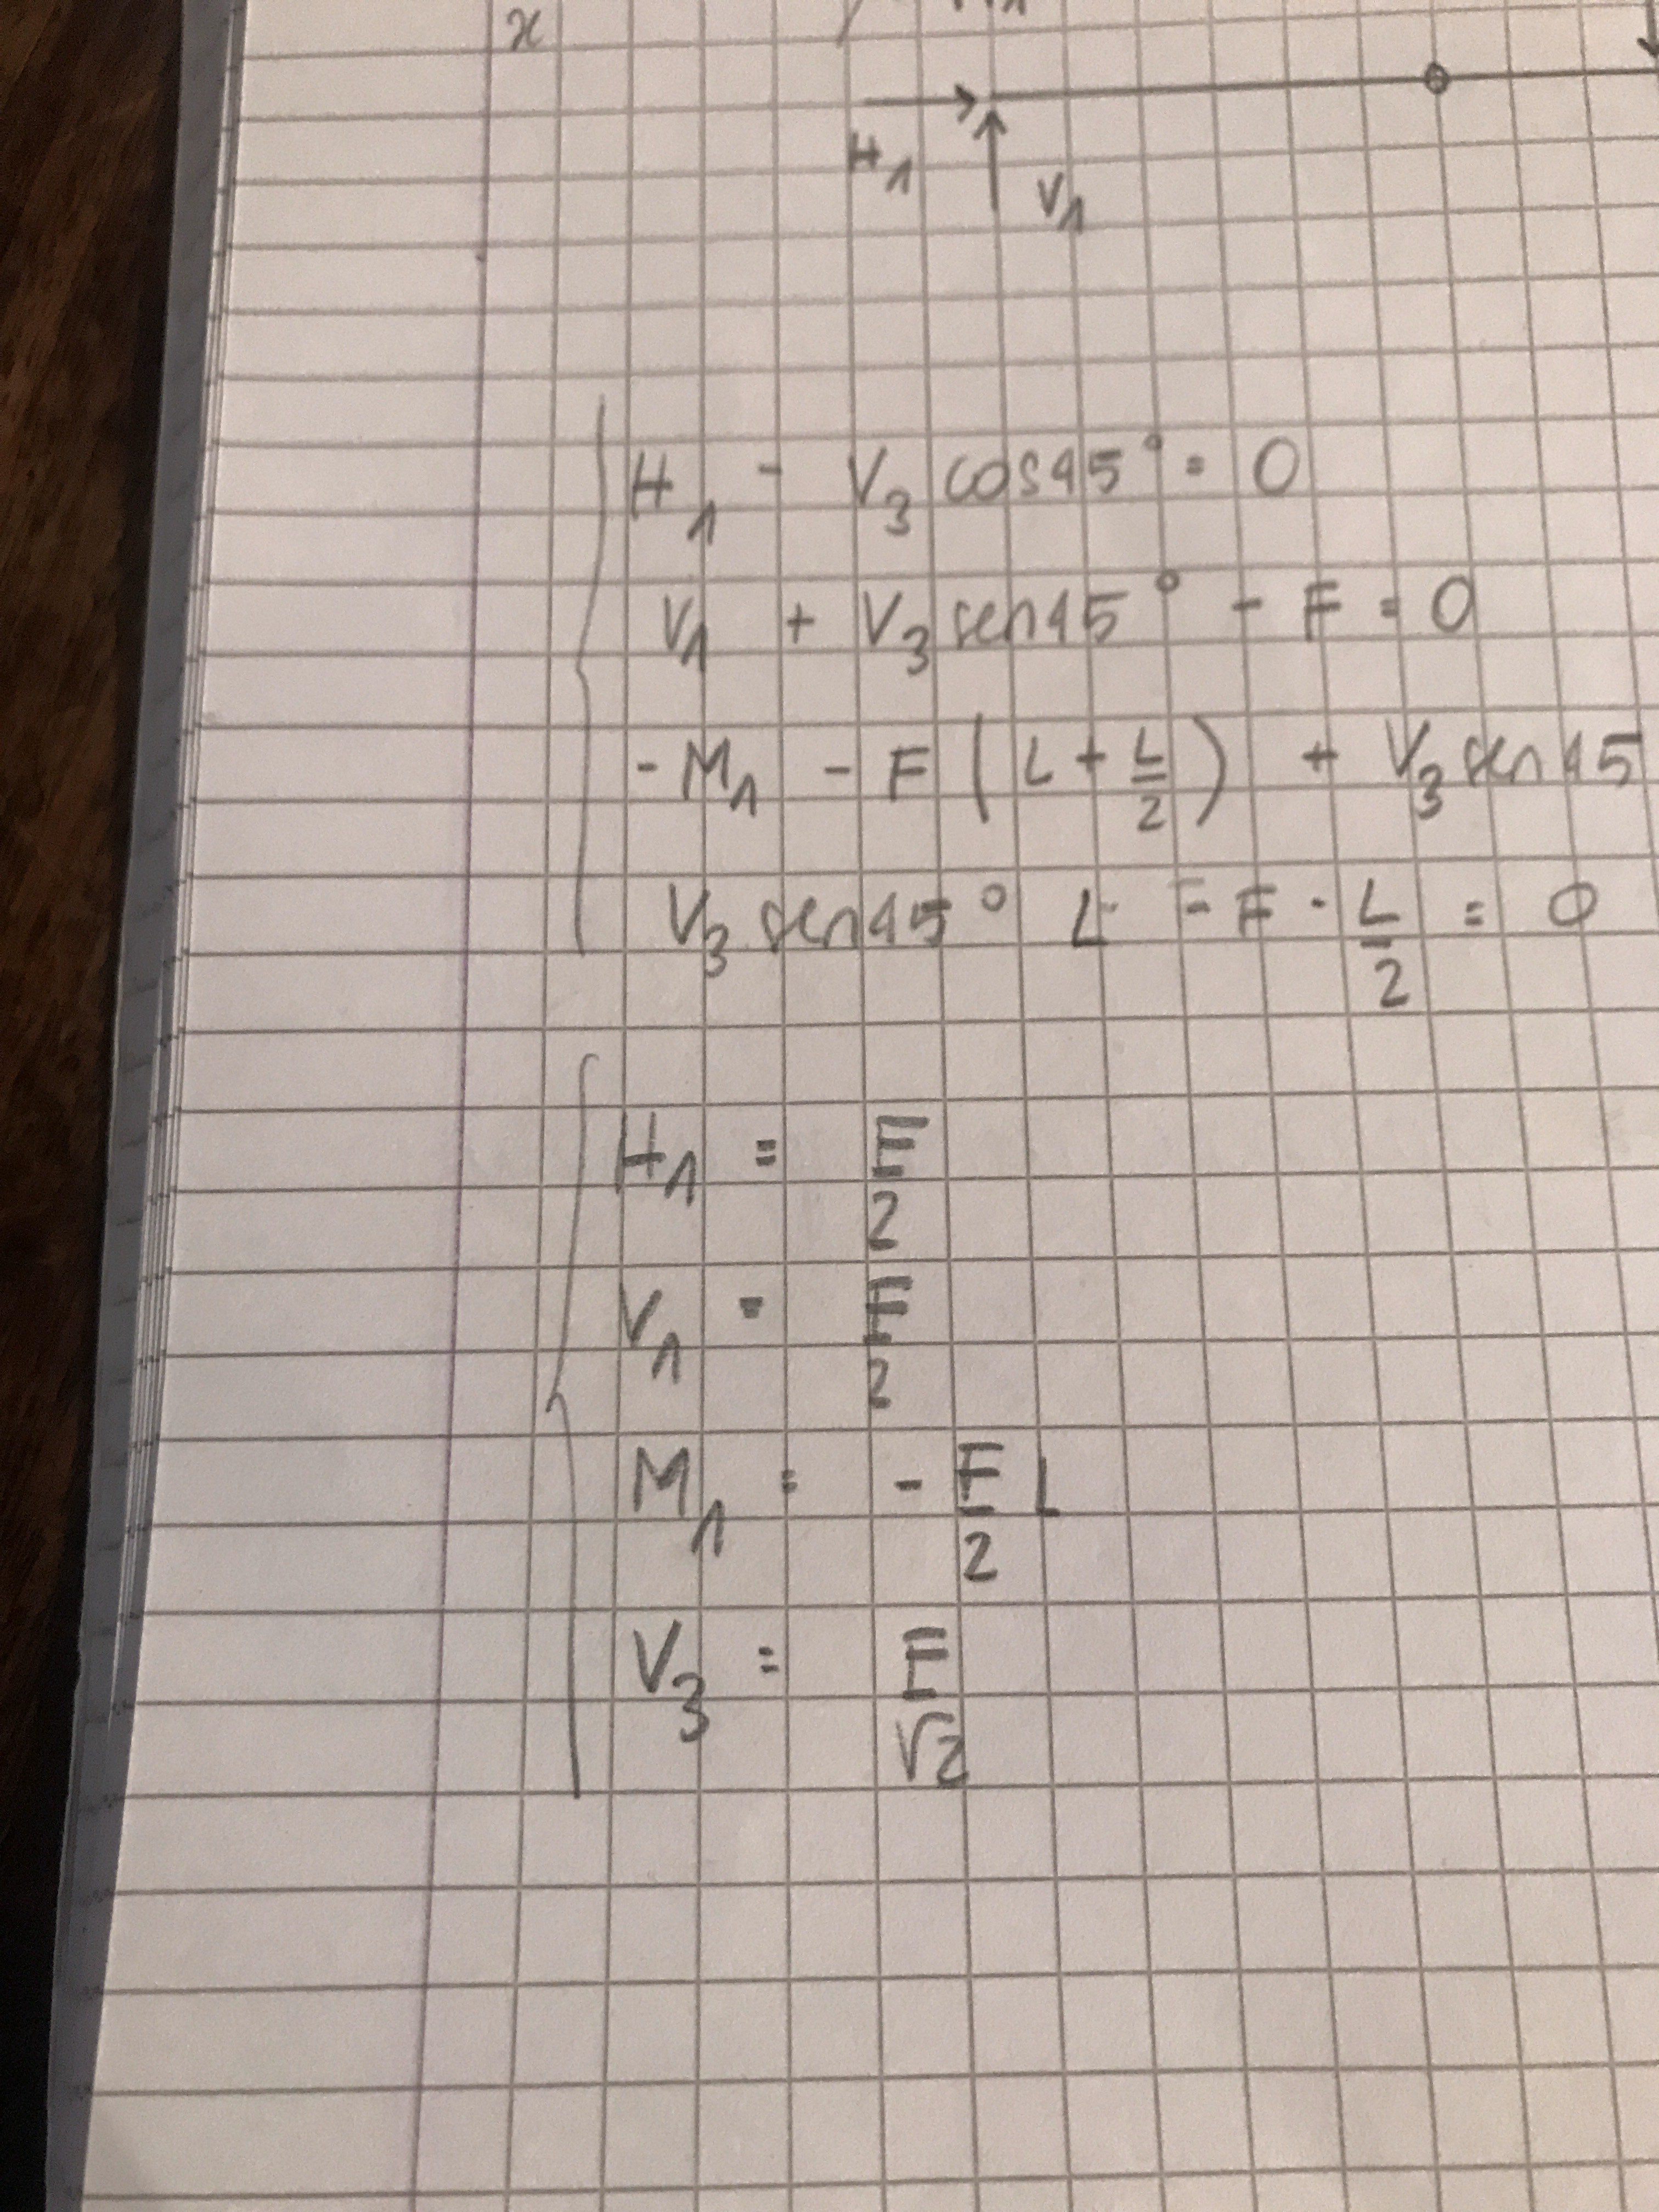 x
H₁
V₁
H₁ - V₃ cos45° = 0
V₁ + V₃ sen45° - F = 0
- M₁ - F (L + L/2) + V₃ sen45
V₃ sen45° L - F · L/2 = 0
H₁ = F/2
V₁ = F/2
M₁ = - F/2 L
V₃ = F/√2